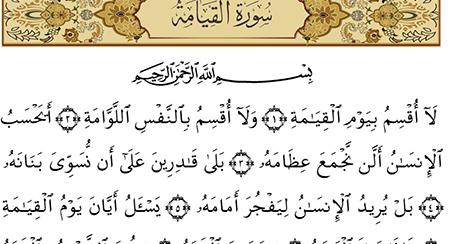 سُورَةُ الْقِيَامَةِ
بِسْمِ اللَّهِ الرَّحْمَٰنِ الرَّحِيمِ
لَآ أُقْسِمُ بِيَوْمِ ٱلْقِيَٰمَةِ ﴿١﴾ وَلَآ أُقْسِمُ بِٱلنَّفْسِ ٱللَّوَّامَةِ ﴿٢﴾ أَيَحْسَبُ
ٱلْإِنسَٰنُ أَلَّن نَّجْمَعَ عِظَامَهُۥ ﴿٣﴾ بَلَىٰ قَٰدِرِينَ عَلَىٰٓ أَن نُّسَوِّىَ بَنَانَهُۥ
﴿٤﴾ بَلْ يُرِيدُ ٱلْإِنسَٰنُ لِيَفْجُرَ أَمَامَهُۥ ﴿٥﴾ يَسْـَٔلُ أَيَّانَ يَوْمُ ٱلْقِيَٰمَةِ